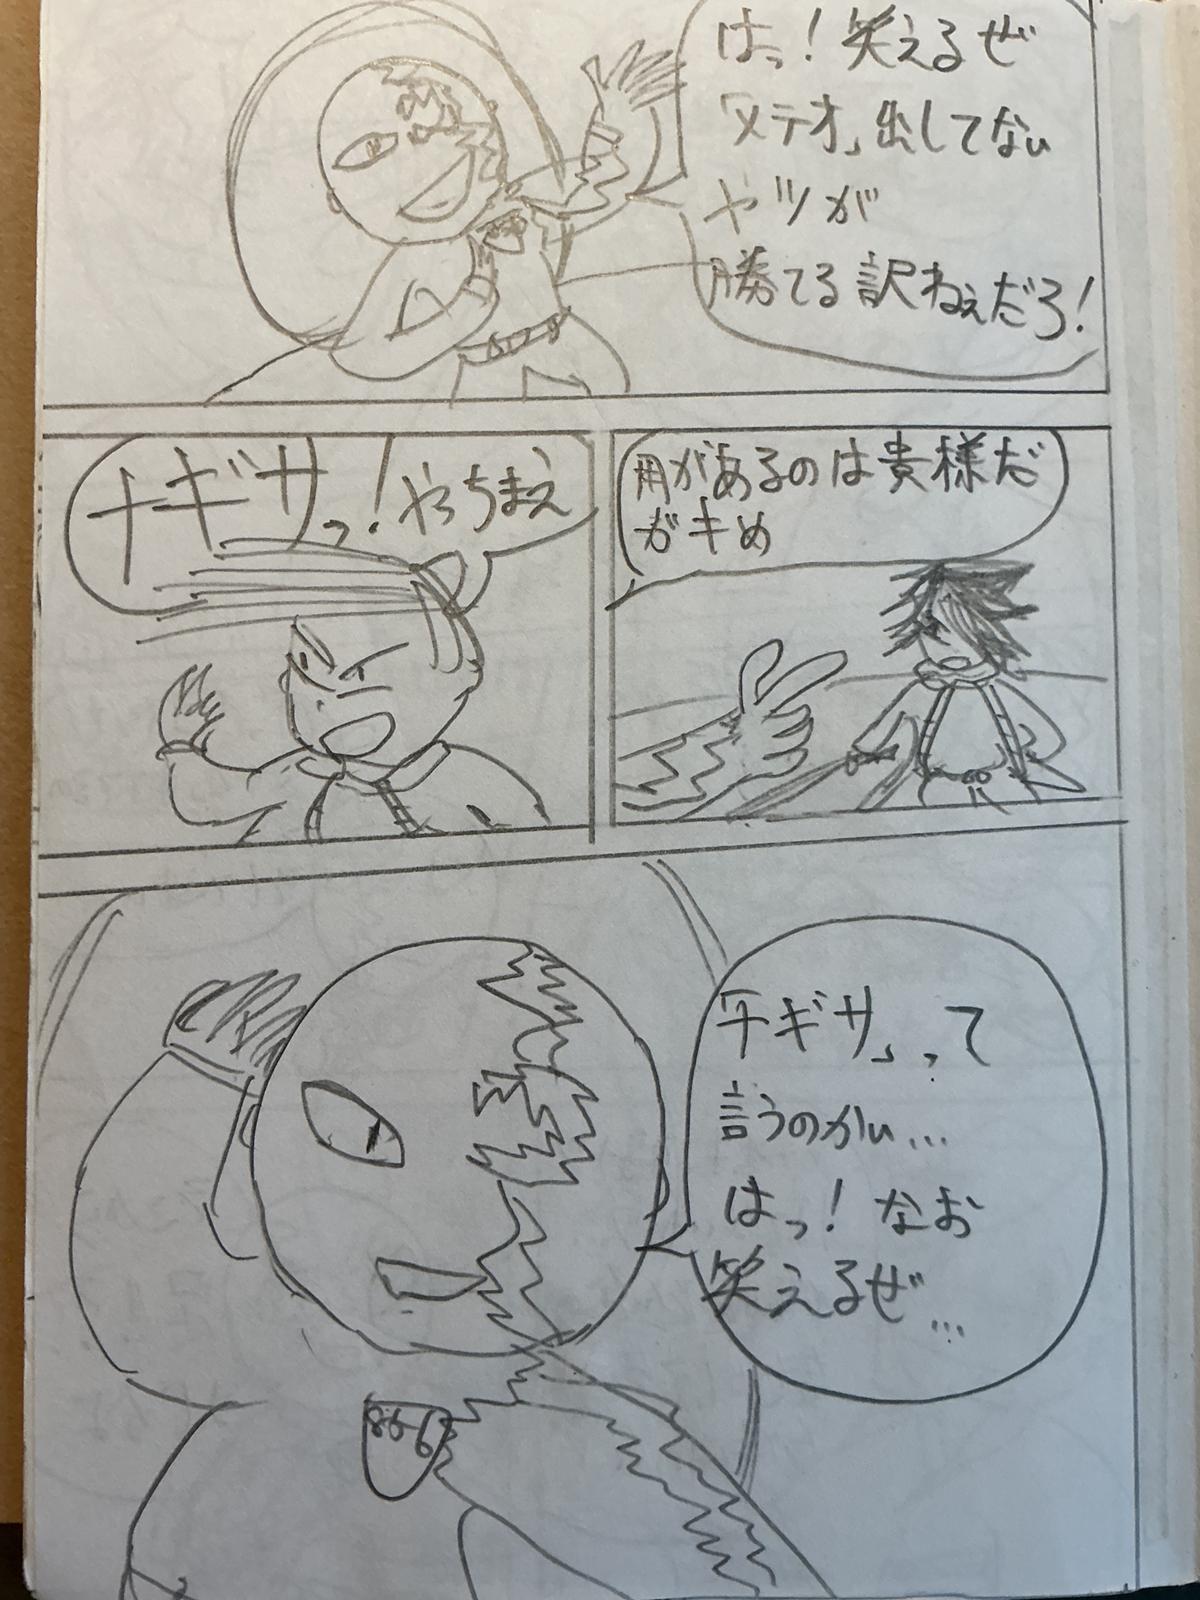 はっ！笑えるぜ
「メテオ」出してない
ヤツが
勝てる訳ねぇだろ！
用があるのは貴様だ
ガキめ
チギサっ！やっちまえ
「チギサ」って
言うのかい…
はっ！なお
笑えるぜ…
866